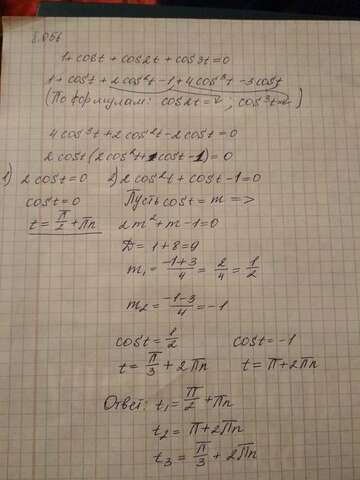 8.066
1+cost+cos2t+cos3t=0
1+cost+2cos²t-1+4cos³t-3cost
(По формулам: cos2t= ; cos3t= )
4cos³t+2cos²t-2cost=0
2cost(2cos²t+cost-1)=0
1) 2cost=0 2) 2cos²t+cost-1=0
cost=0 Пусть cost=m =>
t=π/2+πn 2m²+m-1=0
D=1+8=9
m₁=(-1+3)/4=2/4=1/2
m₂=(-1-3)/4=-1
cost=1/2 cost=-1
t=π/3+2πn t=π+2πn
Ответ: t₁=π/2+πn
t₂=π+2πn
t₃=π/3+2πn